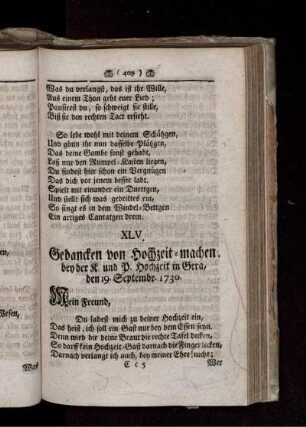 ( 409 )
Was du verlangst, das ist ihr Wille,
Aus einem Thon geht euer Lied;
Pausirest du, so schweigt sie stille,
Biß sie den rechten Tact ersieht.
So lebe wohl mit deinem Schätzgen,
Und gönn ihr nun dasselbe Plätzgen,
Das deine Gambe sonst gehabt,
Laß nur den Rumpel-Kasten liegen,
Du findest hier schon ein Vergnügen
Das dich vor jenem besser labt.
Spielt mit einander ein Duettgen,
Und stellt sich was gedrittes ein,
So singt es in dem Windel-Bettgen
Ein artiges Cantatgen drein.
XLV.
Gedancken von Hochzeit-machen,
bey der K. und P. Hochzeit in Gera,
den 19. Septembr. 1730.
Mein Freund,
Du ladest mich zu deiner Hochzeit ein,
Das heist, ich soll ein Gast nur bey dem Essen seyn.
Denn wird dir deine Braut die rechte Tafel decken,
So darff kein Hochzeit-Gast darnach die Finger lecken,
Darnach verlangt ich auch, bey meiner Ehre! nicht;
C c 5
Wer